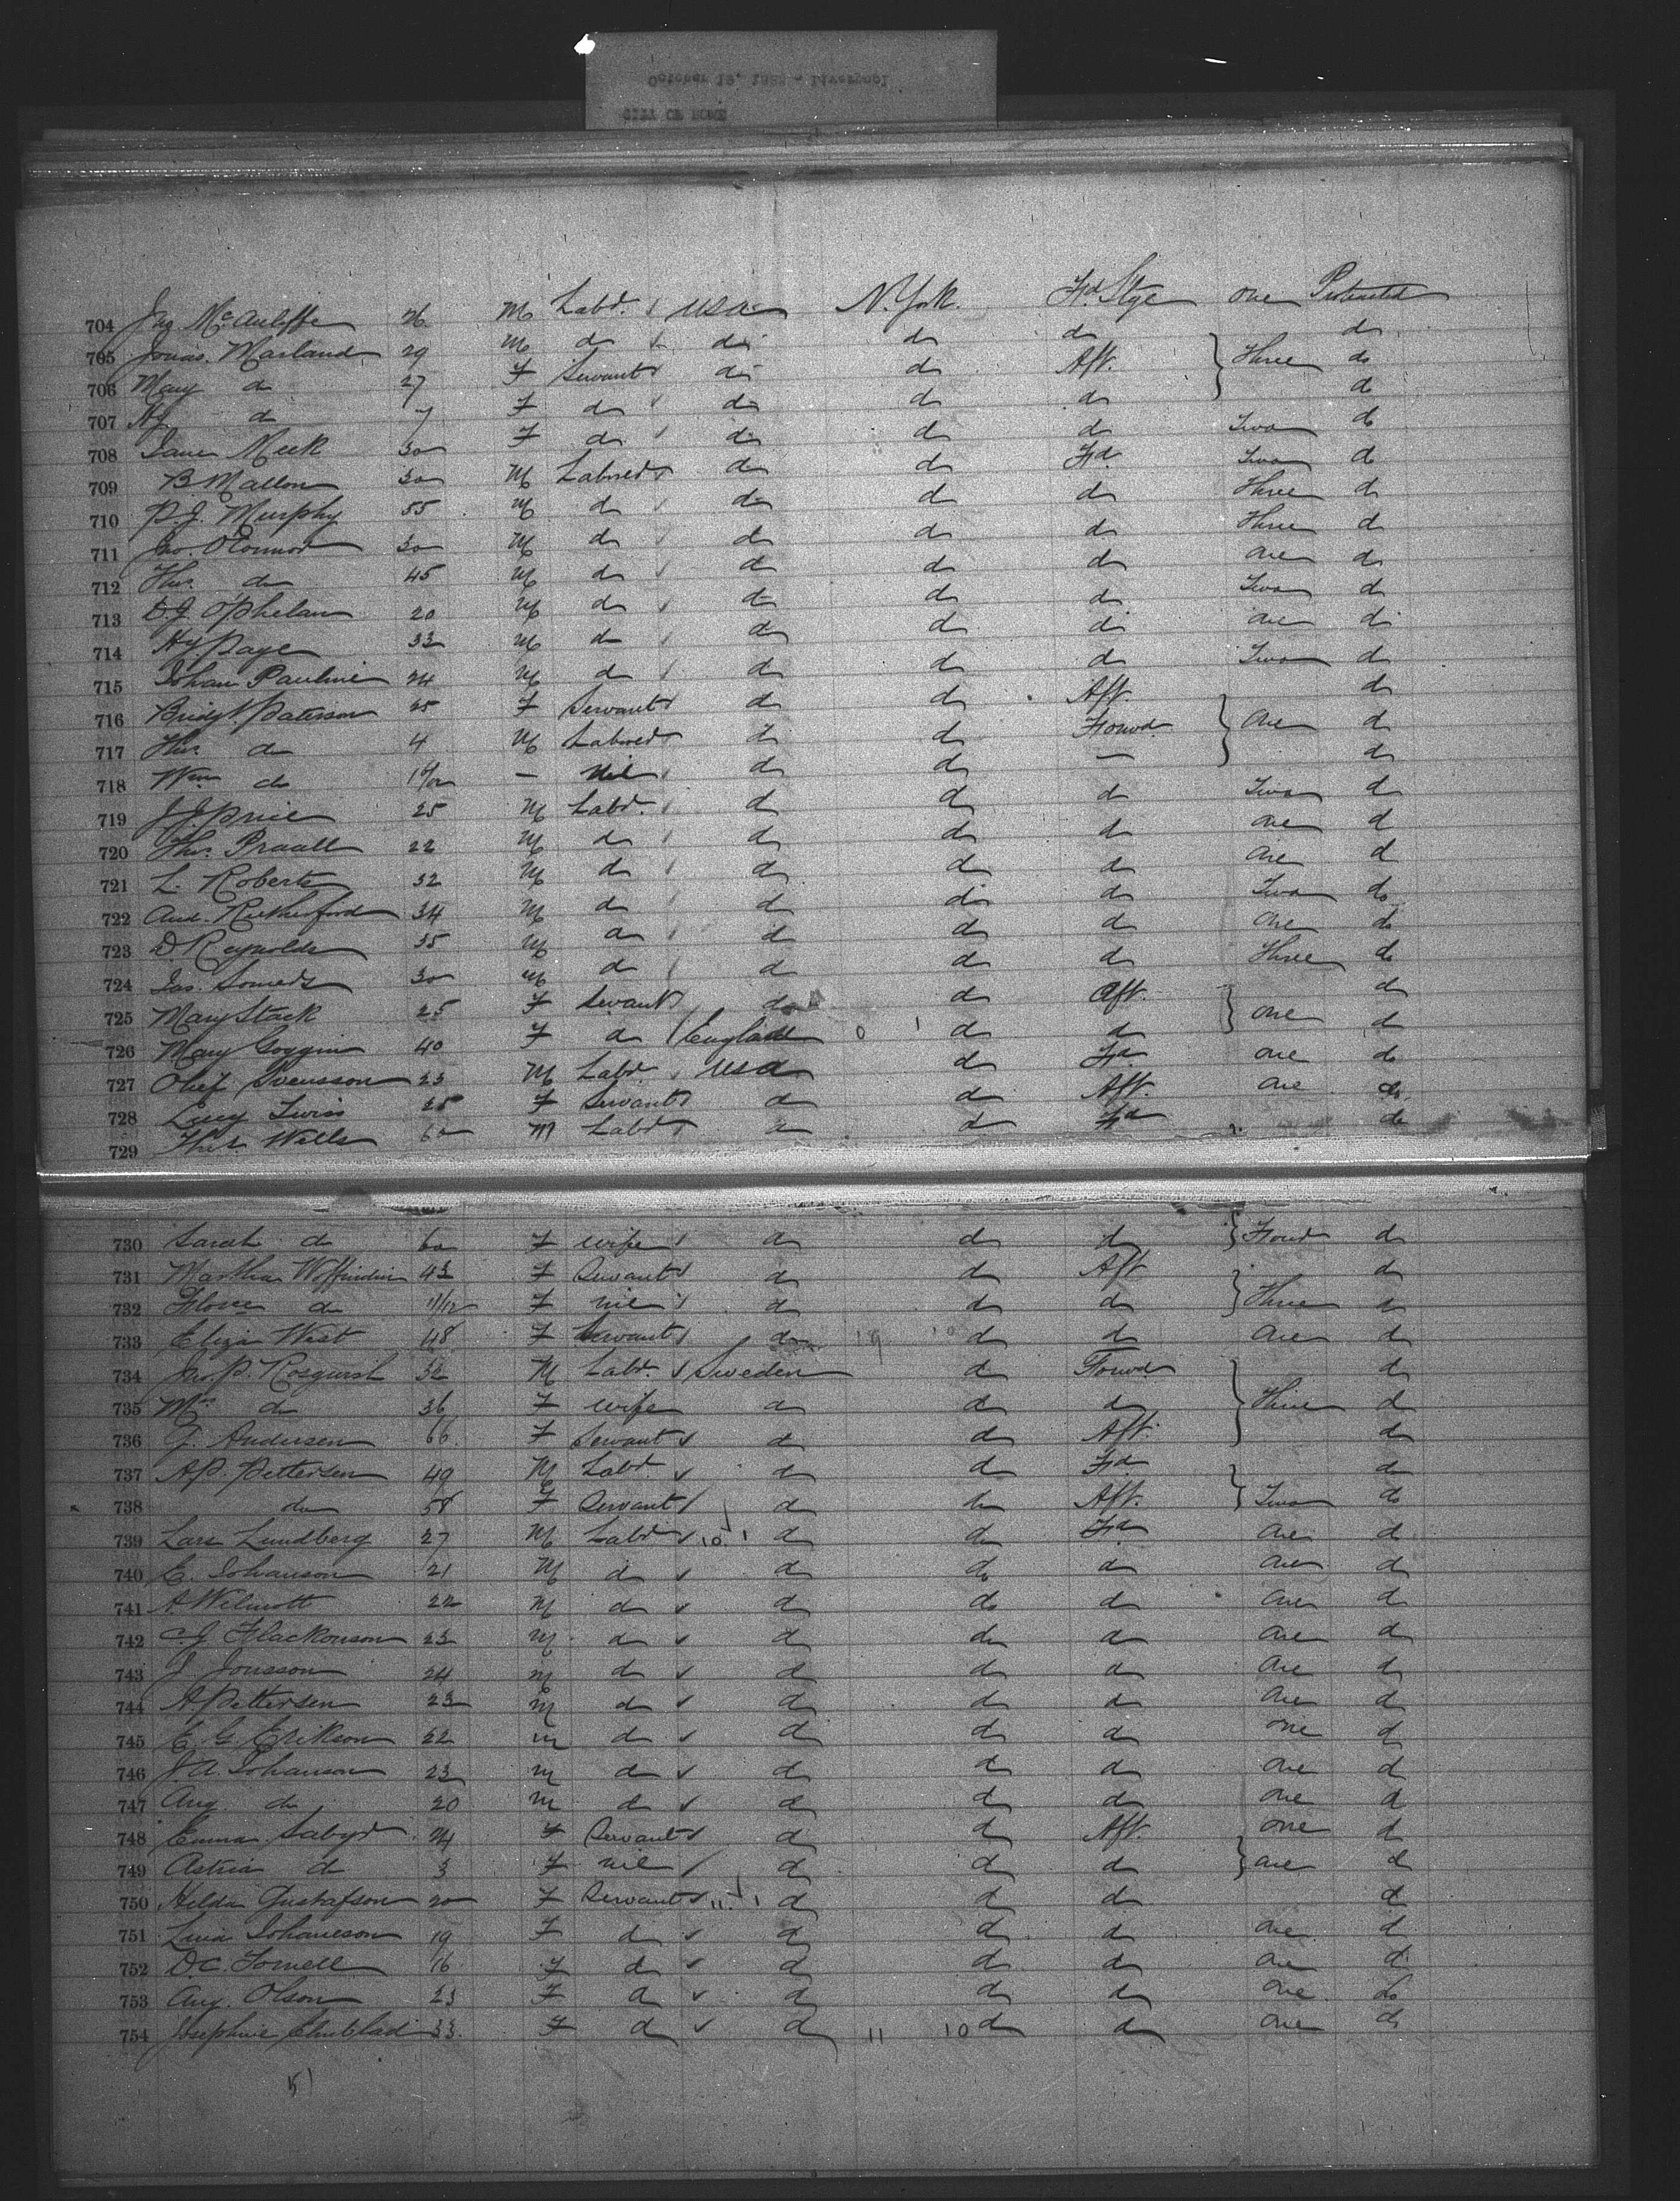 CITY OF ROME
October 19, 188 - Liverpool
704 Jno McAuliffe 26 M Labr. USA N. York. Fd. Stge one Protracted
705 Jonas. Marland 29 M do do do do do
706 Mary do 27 F Servant do do Aft. Three do
707 Hy do 7 F do do do do do
708 Jane Meek 30 F do do do do Two do
709 B. Mallon 30 M Labourer do do Fd. Two do
710 P.J. Murphy 55 M do do do do Three do
711 Jno. O'Connor 30 M do do do do Three do
712 Thos. do 45 M do do do do one do
713 D.J. O'Phelan 20 M do do do do Two do
714 Hy. Page 33 M do do do do one do
715 Johan Pauline 24 M do do do do Two do
716 Bridgt. Paterson 25 F Servant do do Aft. do
717 Thos. do 4 M Labourer do do Forwd. one do
718 Wm do — nil do do — do
719 J.J. Price 25 M Labr. do do do Two do
720 Thos. Praall 22 M do do do do one do
721 L. Roberts 32 M do do do do one do
722 And. Rutherford 34 M do do do do Two do
723 D. Reynolds 35 M do do do do one do
724 Jas. Somers 30 M do do do do Three do
725 Mary Stack 25 F Servant do do Aft. do
726 Mary Goggin 40 F do England 0 1 do do one do
727 Olief Svensson 23 M Labr. USA do Fd one do
728 Lucy Twiss 25 F Servant do do Aft. one do
729 Thos. Wells 60 M Labr do do Fd do
730 Sarah do 60 F wife do do do Four do
731 Martha Woffindin 43 F Servant do do Aft do
732 Flore do 11/12 F nil do do do Three do
733 Eliza West 48 F Servant do 19 10 do do one do
734 Jno. P. Rosquist 32 M Labr. Sweden do Forwd. do
735 Mrs do 36 F wife do do do Three do
736 J. Andersen 66 F Servant do do Aft. do
737 A.P. Pettersen 49 M Labr. do do Fd. do
738 do 58 F Servant do do Aft. Two do
739 Lars Lundberg 27 M Labr 10 1 do do Fd one do
740 E. Johanson 21 M do do do do one do
741 A. Wilmott 22 M do do do do one do
742 C.J. Flackonson 23 M do do do do one do
743 J. Jonsson 24 M do do do do one do
744 A. Pettersen 23 M do do do do one do
745 E. G. Erikson 22 M do do do do one do
746 J.A. Johanson 23 M do do do do one do
747 Aug. do 20 M do do do do one do
748 Emma Sabyr 24 F Servant do do Aft. one do
749 Astria do 3 F nil do do do one do
750 Hilda Gustafson 20 F Servant 11 1 do do do do
751 Lina Johaneson 19 F do do do do one do
752 D.C. Tornell 16 F do do do do one do
753 Aug. Olson 23 F do do do do one do
754 Josephine 33. F do do 11 10 do do one do
51